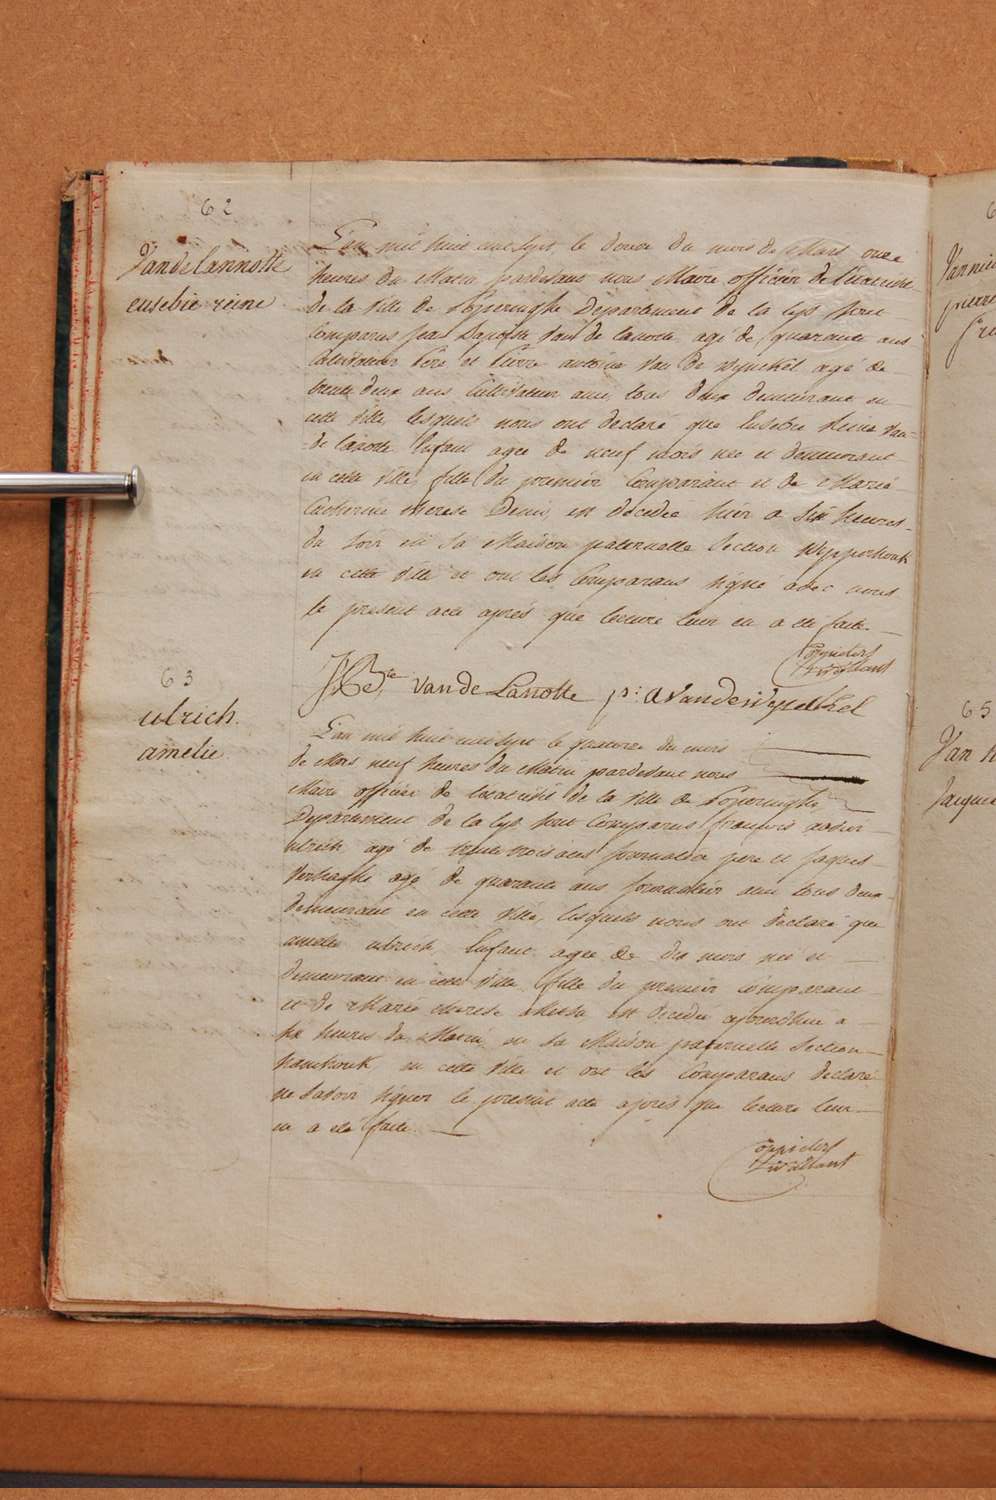 62
Van de Lannotte
eusebie reine
L'an mil huit cent sept le douze du mois de Mars onze
heures du Matin pardevant nous Maire officier de l'etat civil
de la Ville de Poperinghe Departement de la Lys sont
Comparus Jean Baptiste Van de Lanotte agé de quarante ans
Cultivateur Père et Pierre antoine Van De Wynckel agé de
trente deux ans Cultivateur ami tous deux demeurant en
cette Ville, lesquels nous ont declaré que Eusebie Reine Van
de Lanotte Enfant agée de neuf mois née et demeurant
en cette Ville fille du premier Comparant et de Marie
Catherine therese Denis, est décedée hier a six heures
du Soir en sa Maison paternelle Section
en cette Ville et ont les Comparans signé avec nous
le present acte après que lecture leur en a été faite.
J Bte van de Lanotte p: a vandewynckel
63
ulrich
amelie
L'an mil huit cent sept le quatorze du mois
de Mars neuf heures du Matin pardevant nous
Maire officier de l'etat civil de la Ville de Poperinghe
Departement de la Lys sont Comparus françois
ulrich agé de trente trois ans journalier pere et Jaques
Verhaeghe agé de quarante ans journalier ami tous deux
demeurant en cette Ville, lesquels nous ont declaré que
amelie ulrich Enfant agée de dix mois née et
demeurant en cette Ville fille du premier Comparant
et de Marie therese est decedée ajourdhui a
six heures du Matin en sa Maison paternelle Section
en cette Ville et ont les Comparans declaré
ne Savoir signer le present acte après que lecture leur
en a été faite.
65